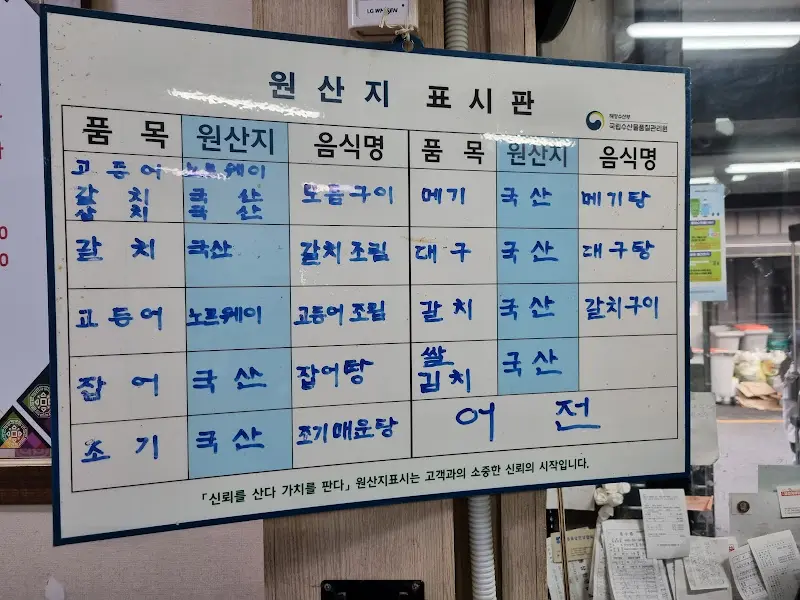 LG WHISEN
원 산 지 표 시 판
해양수산부
국립수산물품질관리원
품 목 원산지 음식명 품 목 원산지 음식명
고 등 어 노르웨이
갈 치 국 산 모듬구이 메기 국 산 메기탕
삼 치 국 산
갈 치 국산 갈치조림 대 구 국 산 대구탕
고 등 어 노르웨이 고등어조림 갈 치 국 산 갈치구이
잡 어 국 산 잡어탕 쌀 국 산
김 치
조 기 국 산 조기매운탕 어 전
「신뢰를 산다 가치를 판다」 원산지표시는 고객과의 소중한 신뢰의 시작입니다.